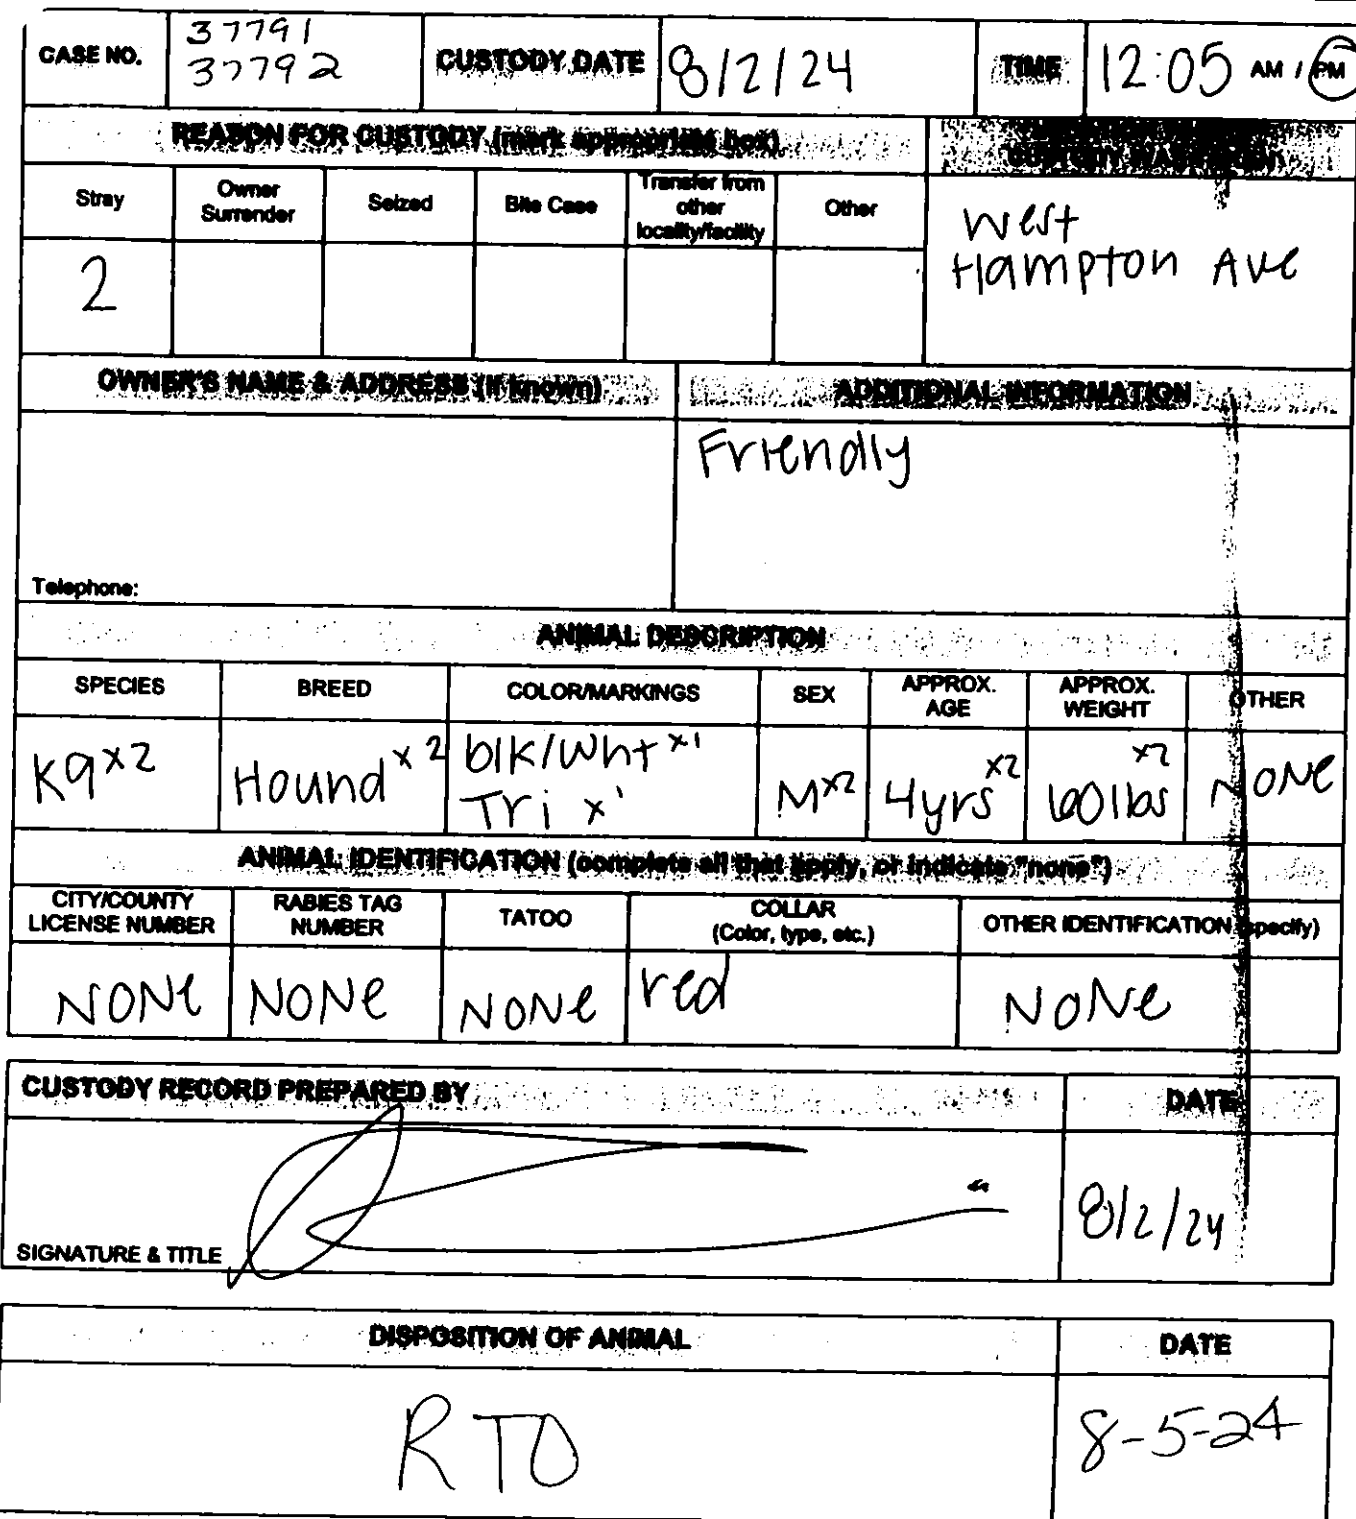 CASE NO.
37791
37792
CUSTODY DATE
8/2/24
TIME
12:05 AM / PM
REASON FOR CUSTODY (mark appropriate box)
CUSTODY WAS TAKEN
Stray
Owner
Surrender
Seized
Bite Case
Transfer from
other
locality/facility
Other
2
West
Hampton Ave
OWNER'S NAME & ADDRESS (if known)
ADDITIONAL INFORMATION
Friendly
Telephone:
ANIMAL DESCRIPTION
SPECIES
BREED
COLOR/MARKINGS
SEX
APPROX.
AGE
APPROX.
WEIGHT
OTHER
K9 x2
Hound x2
blk/wht x1
Tri x1
M x2
4yrs x2
60lbs x2
NONe
ANIMAL IDENTIFICATION (complete all that apply, or indicate "none")
CITY/COUNTY
LICENSE NUMBER
RABIES TAG
NUMBER
TATOO
COLLAR
(Color, type, etc.)
OTHER IDENTIFICATION (specify)
NONe
NONe
NONe
red
NONe
CUSTODY RECORD PREPARED BY
DATE
SIGNATURE & TITLE
8/2/24
DISPOSITION OF ANIMAL
DATE
RTO
8-5-24